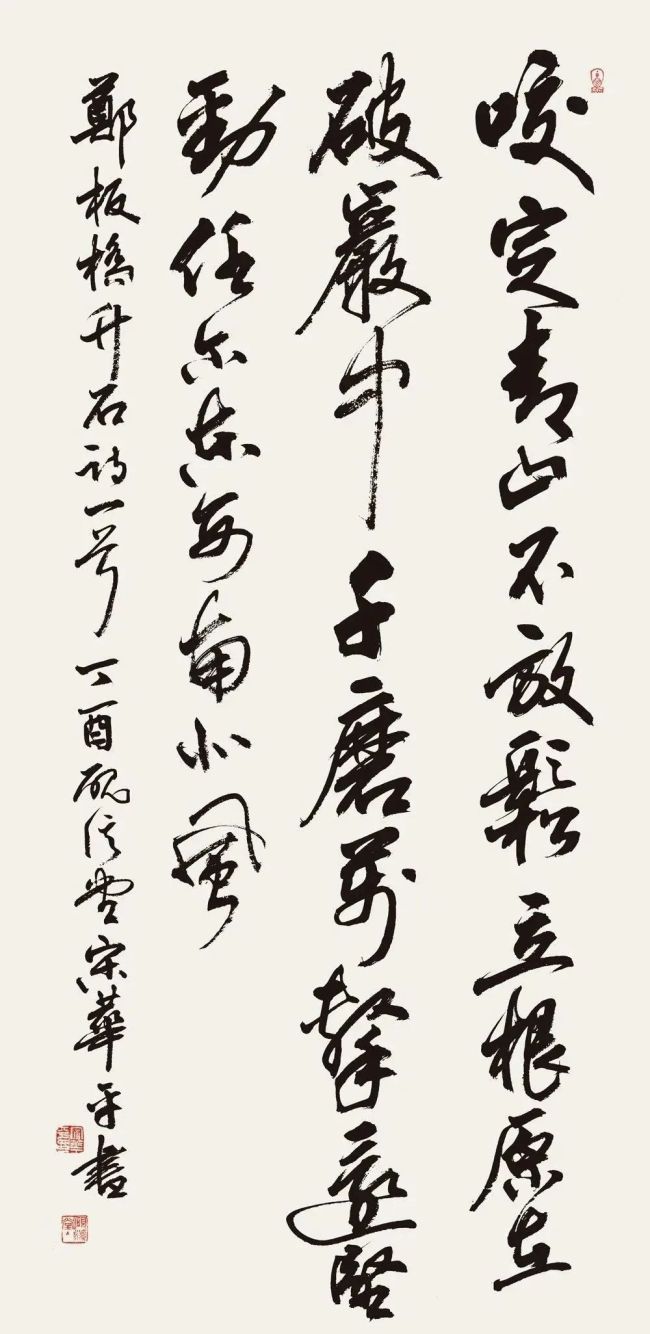 咬定青山不放鬆立根原在
破巖中千磨萬擊還堅
勁任尔东西南北風
鄭板橋竹石詩一首丁酉宋華平書